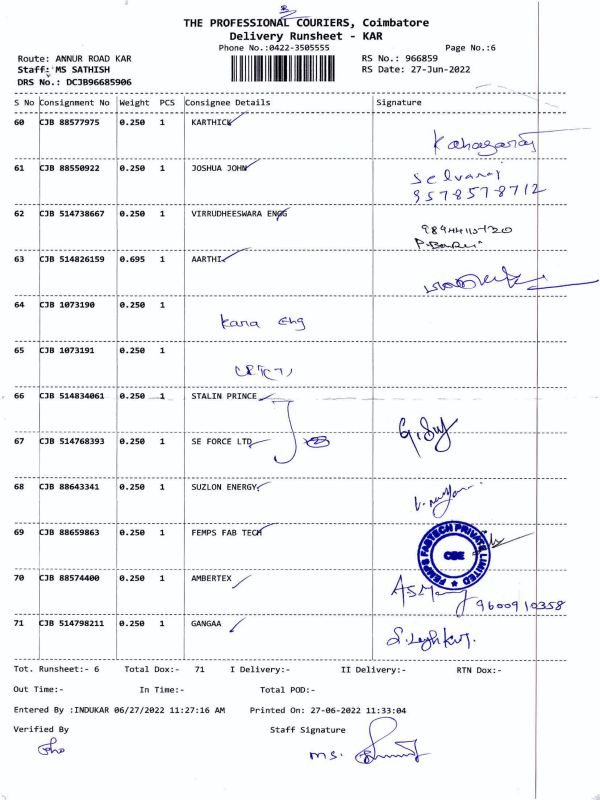 THE PROFESSIONAL COURIERS, Coimbatore
Delivery Runsheet - KAR
Phone No.:0422-3505555 Page No.:6
Route: ANNUR ROAD KAR RS No.: 966859
Staff: MS SATHISH RS Date: 27-Jun-2022
DRS No.: DCJB96685906
S No Consignment No Weight PCS Consignee Details Signature
60 CJB 88577975 0.250 1 KARTHICK
61 CJB 88550922 0.250 1 JOSHUA JOHN Selvaraj
9578578712
62 CJB 514738667 0.250 1 VIRRUDHEESWARA ENGG
63 CJB 514826159 0.695 1 AARTHI
64 CJB 1073190 0.250 1
Kana Eng
65 CJB 1073191 0.250 1
66 CJB 514834061 0.250 1 STALIN PRINCE
67 CJB 514768393 0.250 1 SE FORCE LTD
68 CJB 88643341 0.250 1 SUZLON ENERGY
69 CJB 88659863 0.250 1 FEMPS FAB TECH
FEMPS FABTECH PRIVATE LIMITED
CBE
70 CJB 88574400 0.250 1 AMBERTEX
9600910358
71 CJB 514798211 0.250 1 GANGAA
Tot. Runsheet:- 6 Total Dox:- 71 I Delivery:- II Delivery:- RTN Dox:-
Out Time:- In Time:- Total POD:-
Entered By :INDUKAR 06/27/2022 11:27:16 AM Printed On: 27-06-2022 11:33:04
Verified By Staff Signature
MS.